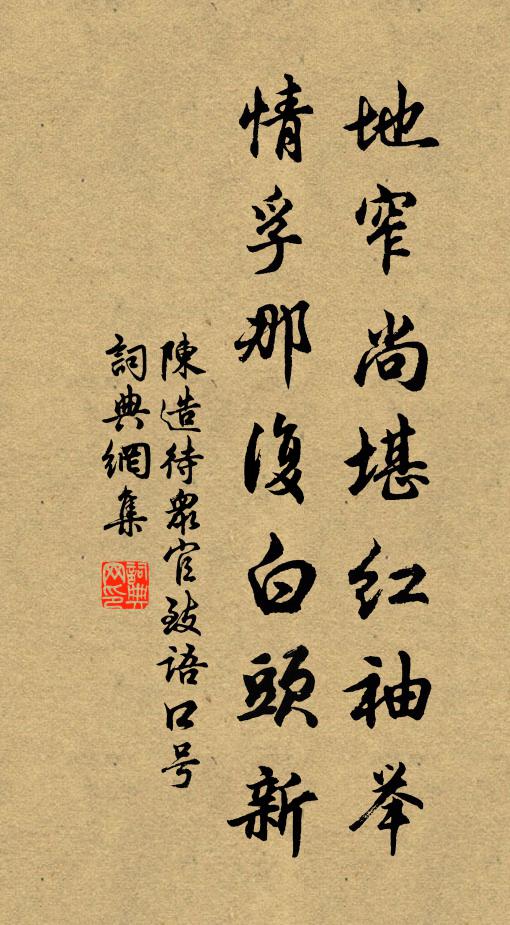 地窄尚堪红袖举
情孚那復白頭新
陳造待衆官致语口号
詞典網集
詞典网印